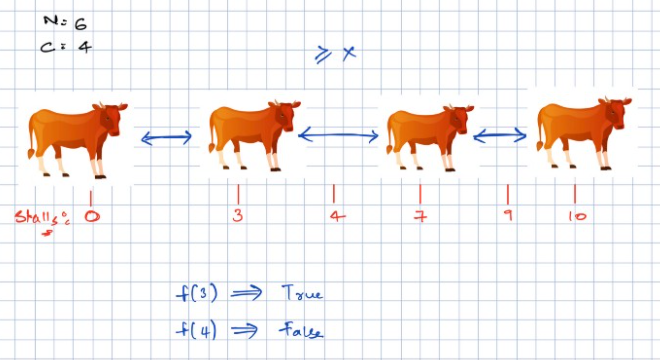 N: 6
C: 4
≥ x
Stalls: 0 3 4 7 9 10
f(3) ⇒ True
f(4) ⇒ False